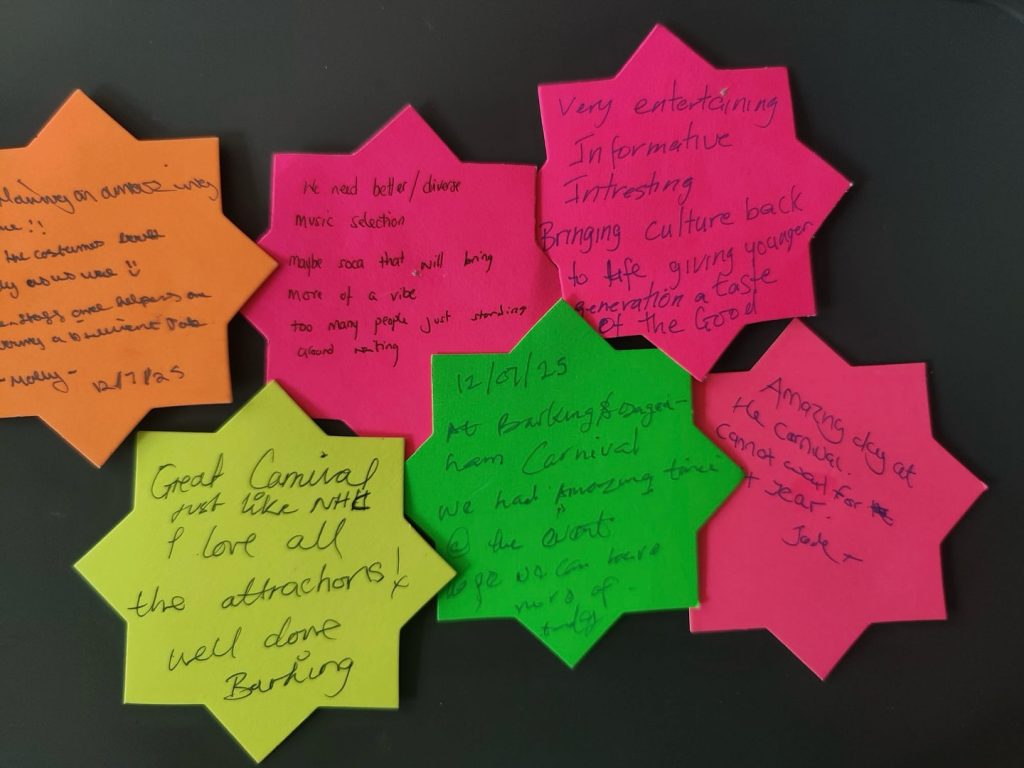 me!!
the costumes
as we use
are helpers on
a brilliant
-Molly- 12/7/25
We need better/diverse
music selection
maybe soca that will bring
more of a vibe
too many people just standing
around waiting
Very entertaining
Informative
Intresting
Bringing culture back
to life giving younger
generation a taste
of the Good
Great Carnival
just like NH
I love all
the attractions! x
well done
Barking
12/07/25
At Barking & Dagen-
ham Carnival
we had Amazing time
@ the event
we can have
more of
today
Amazing day at
the carnival.
cannot wait for
year.
Jade x